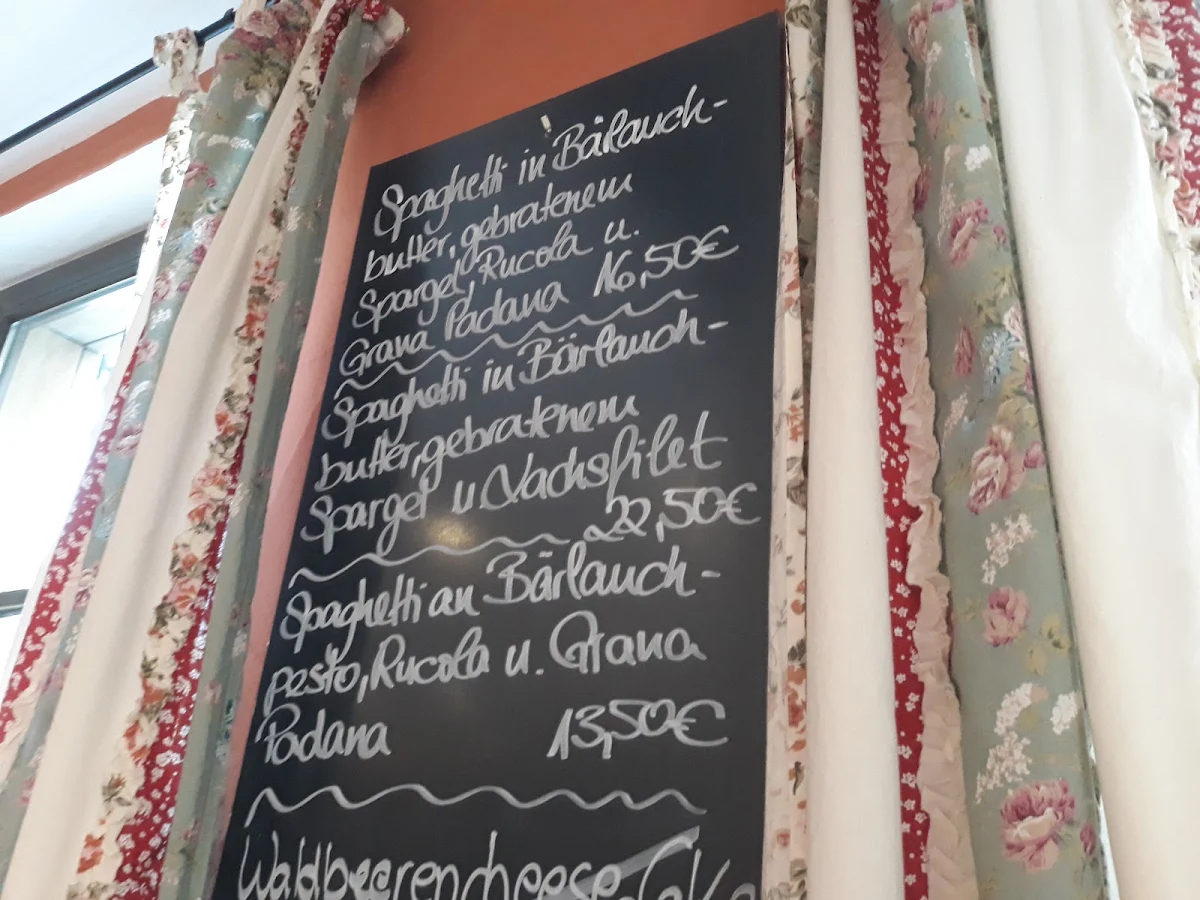 Spaghetti in Bärlauch-
butter, gebratenem
Spargel, Rucola u.
Grana Padana 16,50€
Spaghetti in Bärlauch-
butter, gebratenem
Spargel u. Lachsfilet
22,50€
Spaghetti an Bärlauch-
pesto, Rucola u. Grana
Padana 13,50€
Waldbeerencheese Cake